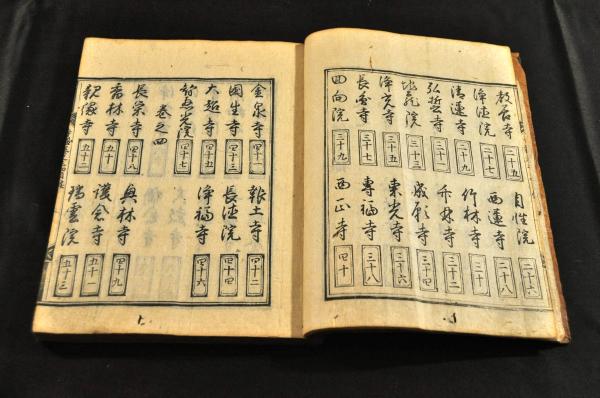 二十五
自性院
二十六
浄徳院
二十七
西蓮寺
二十八
清蓮寺
二十九
竹林寺
三十
弘誓寺
三十一
三十二
地蔵院
三十三
成願寺
三十四
浄光寺
三十五
東光寺
三十六
長寿寺
三十七
専福寺
三十八
回向院
三十九
西正寺
四十
金泉寺
四十一
報土寺
四十二
国生寺
四十三
長徳院
四十四
大超寺
四十五
浄福寺
四十六
智恵光院
四十七
巻之四
長栄寺
四十八
興林寺
四十九
香林寺
五十
護念寺
五十一
親縁寺
五十二
瑞雲院
五十三